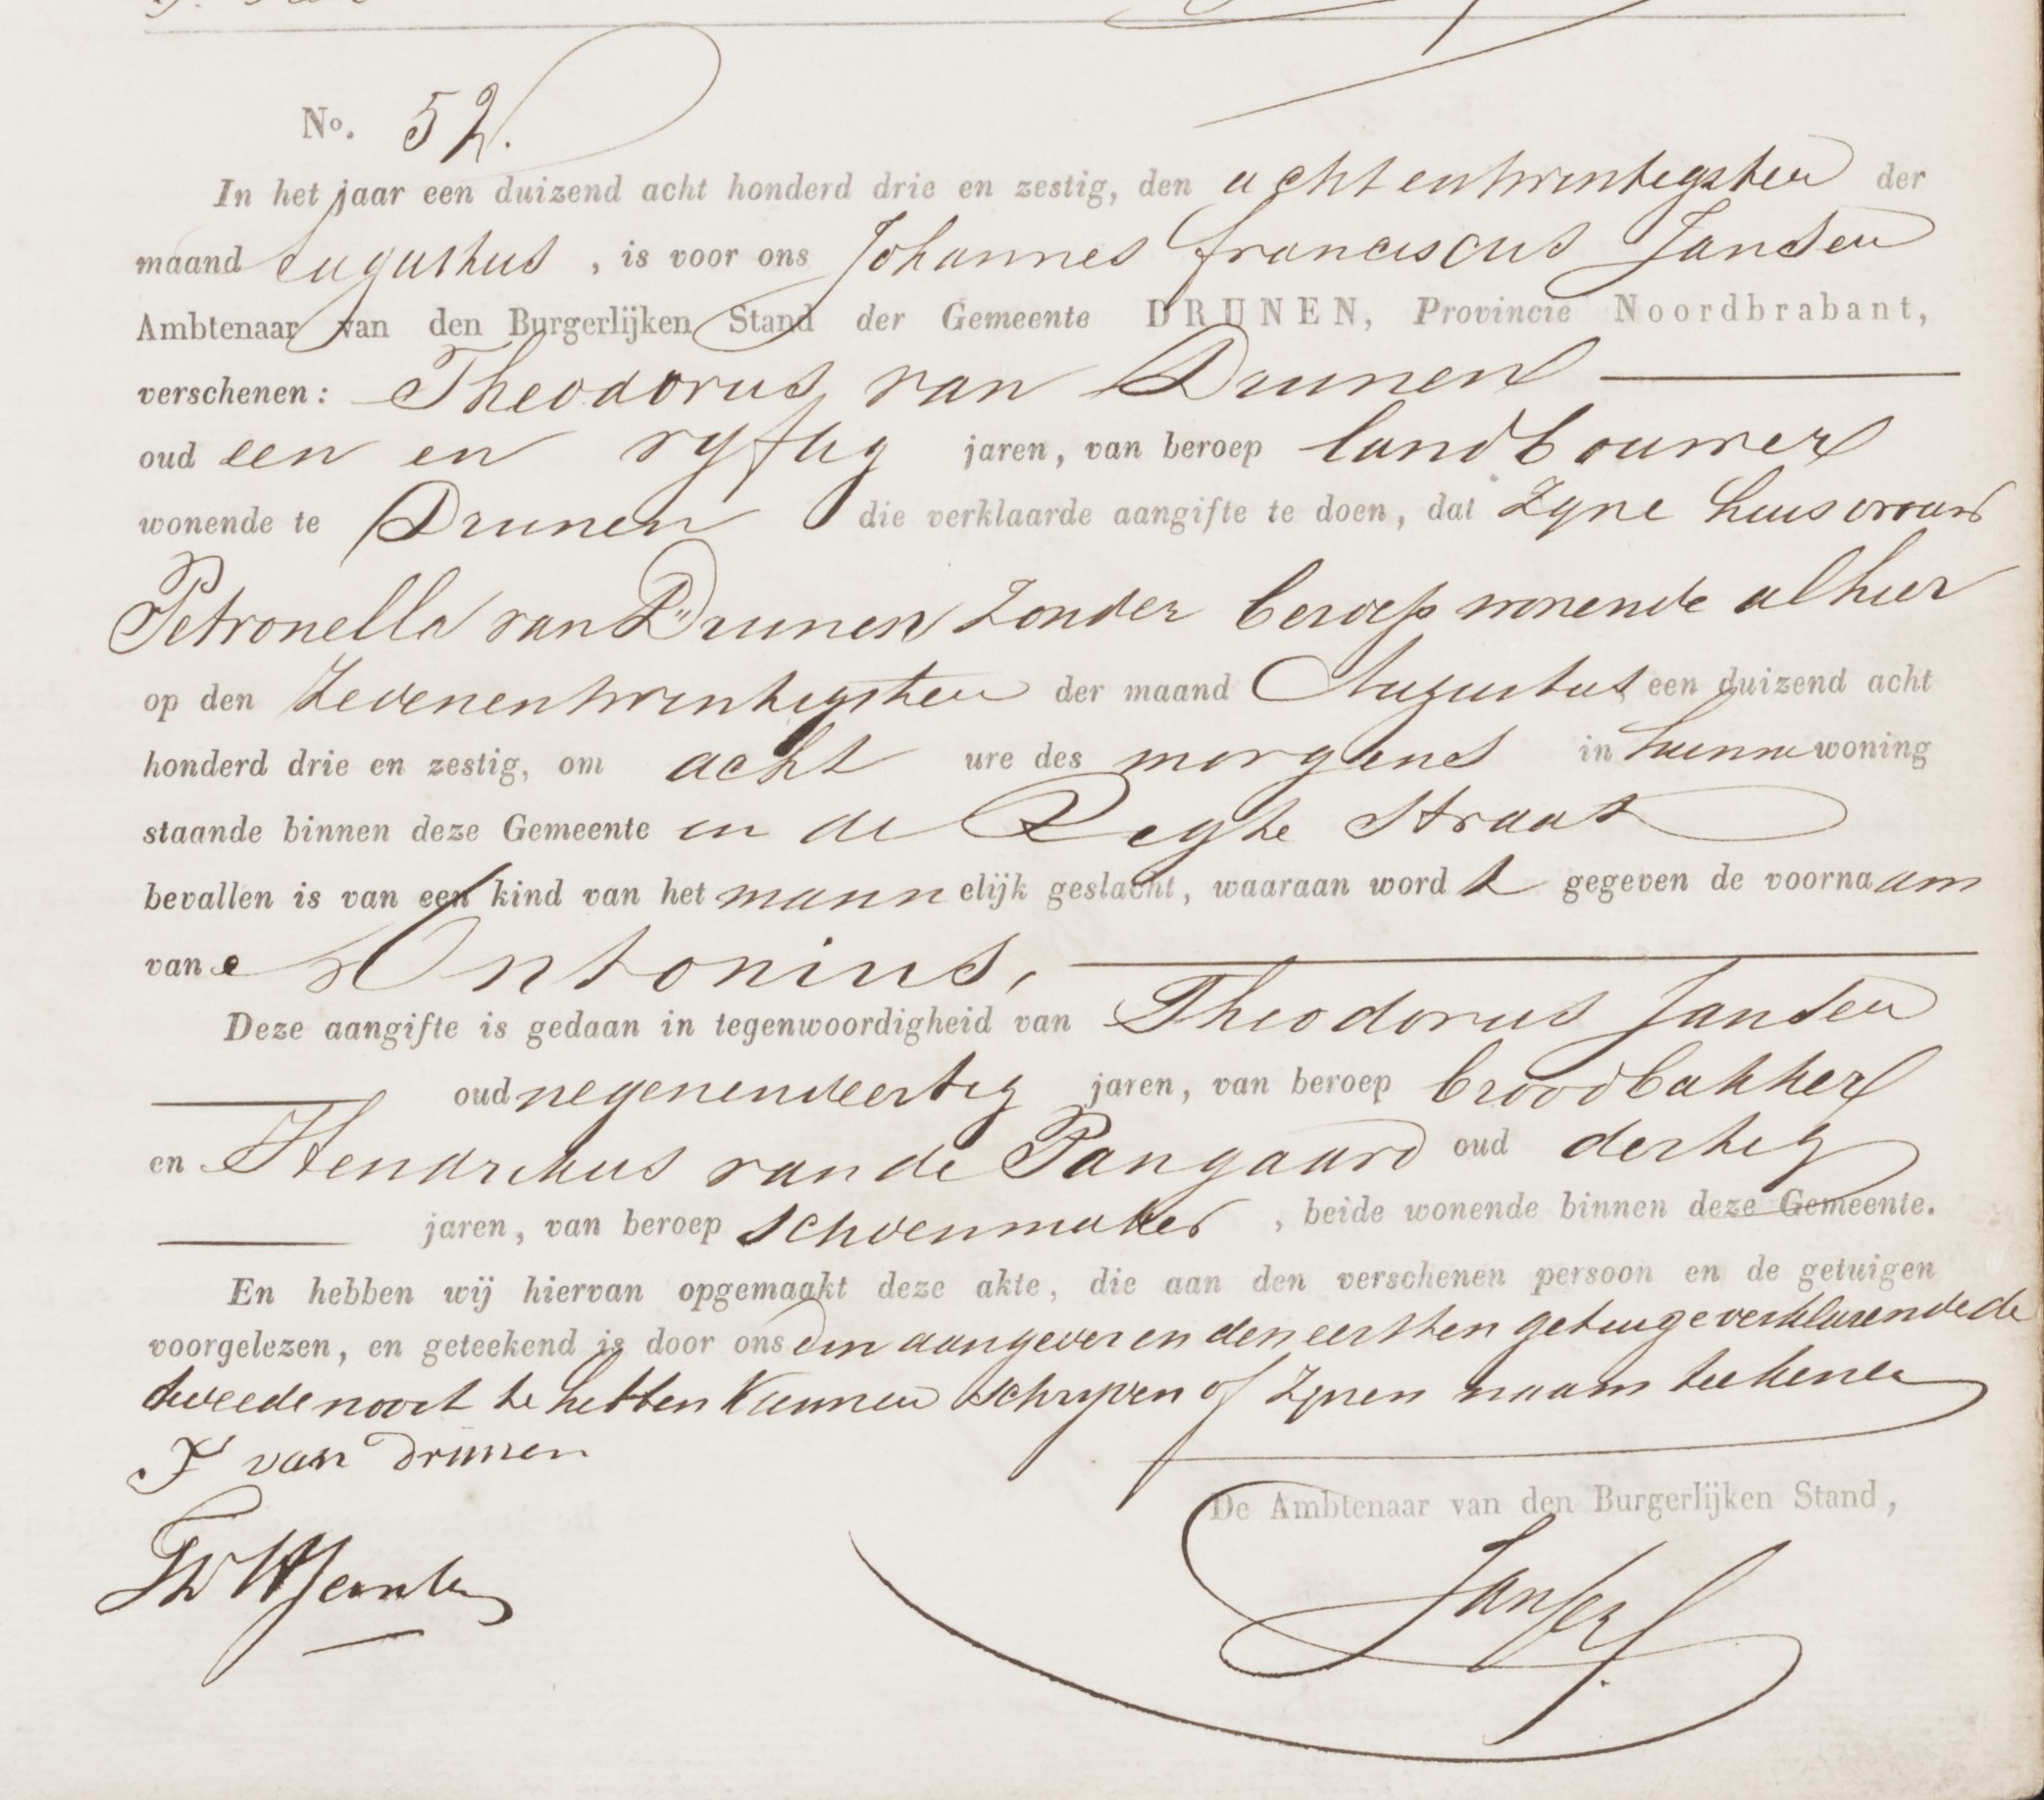 No. 52.
In het jaar een duizend acht honderd drie en zestig, den achtentwintigsten der
maand Augustus, is voor ons Johannes Franciscus Jansen
Ambtenaar van den Burgerlijken Stand der Gemeente DRUNEN, Provincie Noordbrabant,
verschenen: Theodorus van Drunen
oud een en vyftig jaren, van beroep landbouwer
wonende te Drunen die verklaarde aangifte te doen, dat zyne huisvrouw
Petronella van Drunen zonder beroep wonende alhier
op den zevenentwintigsten der maand Augustus een duizend acht
honderd drie en zestig, om acht ure des morgens in hunne woning
staande binnen deze Gemeente in de Regte straat
bevallen is van een kind van het mannelijk geslacht, waaraan wordt gegeven de voornaam
van Antonius,
Deze aangifte is gedaan in tegenwoordigheid van Theodorus Jansen
oud negenendertig jaren, van beroep broodbakker
en Hendrikus van de Pangaard oud dertig
jaren, van beroep schoenmaker, beide wonende binnen deze Gemeente.
En hebben wij hiervan opgemaakt deze akte, die aan den verschenen persoon en de getuigen
voorgelezen, en geteekend is door ons den aangever en den eersten getuige verklarende de
tweede nooit te hebben kunnen schryven of zynen naam teekenen
T van Drunen
De Ambtenaar van den Burgerlijken Stand,
Jansen